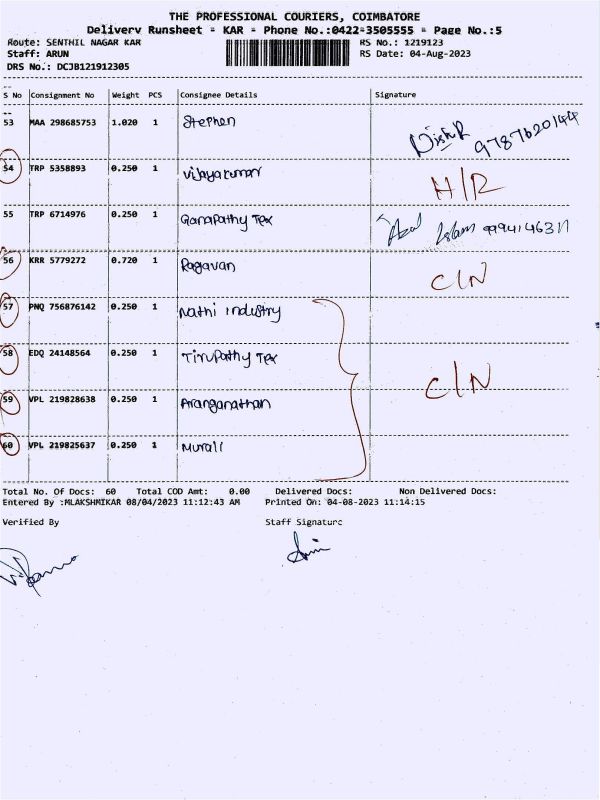 THE PROFESSIONAL COURIERS, COIMBATORE
Delivery Runsheet = KAR = Phone No.:0422=3505555 = Page No.:5
Route: SENTHIL NAGAR KAR RS No.: 1219123
Staff: ARUN RS Date: 04-Aug-2023
DRS No.: DCJB121912305
S No Consignment No Weight PCS Consignee Details Signature
53 MAA 298685753 1.020 1 Stephen 9787620144
54 TRP 5358893 0.250 1 Vijayakumar H/R
55 TRP 6714976 0.250 1 Ganapathy Tex Islam
56 KRR 5779272 0.720 1 Ragavan C/N
57 PNQ 756876142 0.250 1 Nathi industry
58 EDQ 24148564 0.250 1 Tirupathy Tex C/N
59 VPL 219828638 0.250 1 Aranganathan
60 VPL 219825637 0.250 1 Murali
Total No. Of Docs: 60 Total COD Amt: 0.00 Delivered Docs: Non Delivered Docs:
Entered By :MLAKSHMIKAR 08/04/2023 11:12:43 AM Printed On: 04-08-2023 11:14:15
Verified By Staff Signature